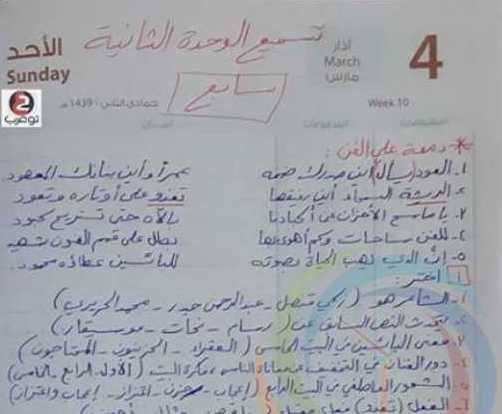 تسميع الوحدة الثانية
سابع
الأحد
Sunday
آذار
March
مارس
4
Week 10
جمادى الثاني : 1439هـ
توضرب
* دمعة على الفن :
١- العود (يسأل) أين صدرك ضمه عمراً وأين بنانك المعهود
٢- الريشة السمراء أين رنينها تغدو على أوتاره وتعود
٣- يا ماسح الأحزان عن أكبادنا الآن حتى تستريح كبود
٤- للفن ساحات وكم أهوى بها بطل على قمم الفنون شهيد
٥- إن الذي يهب الحياة بصوته للبائسين عطاؤه محمود
١ اختر :
١- الشاعر هو ( زكي قنصل - عبد الرحمن حيدر - محمد الحريري )
٢- يتحدث النص السابق عن ( رسام - نحات - موسيقار )
٣- معنى البائسين في البيت الخامس ( الفقراء - الحزينون - المحتاجون )
٤- دور الفنان في التخفيف عن معاناة الناس فكرة البيت ( الأول - الرابع - الخامس )
٥- الشعور العاطفي في البيت الرابع ( إعجاب - حزن - اعتزاز - إعجاب واعتزاز )
٦- الفعل ( تغدو )